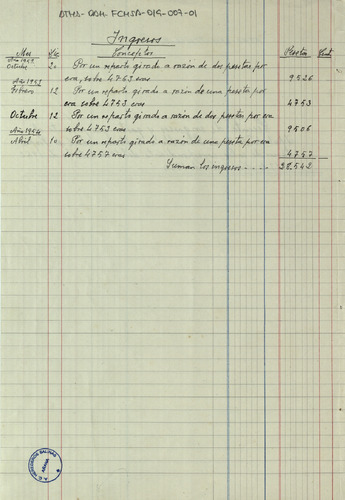 DTHS-QDH-FCHSA-019-007-01
Ingresos
Mes Día Conceptos Pesetas Cent
Año 1952
Octubre 20 Por un reparto girado a razón de dos pesetas por
era, sobre 4763 eras 9526
Año 1953
Febrero 12 Por un reparto girado a razón de una peseta por
era sobre 4753 eras 4753
Octubre 12 Por un reparto girado a razón de dos pesetas por
era sobre 4753 eras 9506
Año 1954
Abril 10 Por un reparto girado a razón de una peseta por era
sobre 4757 eras 4757
Suman los ingresos 28.542